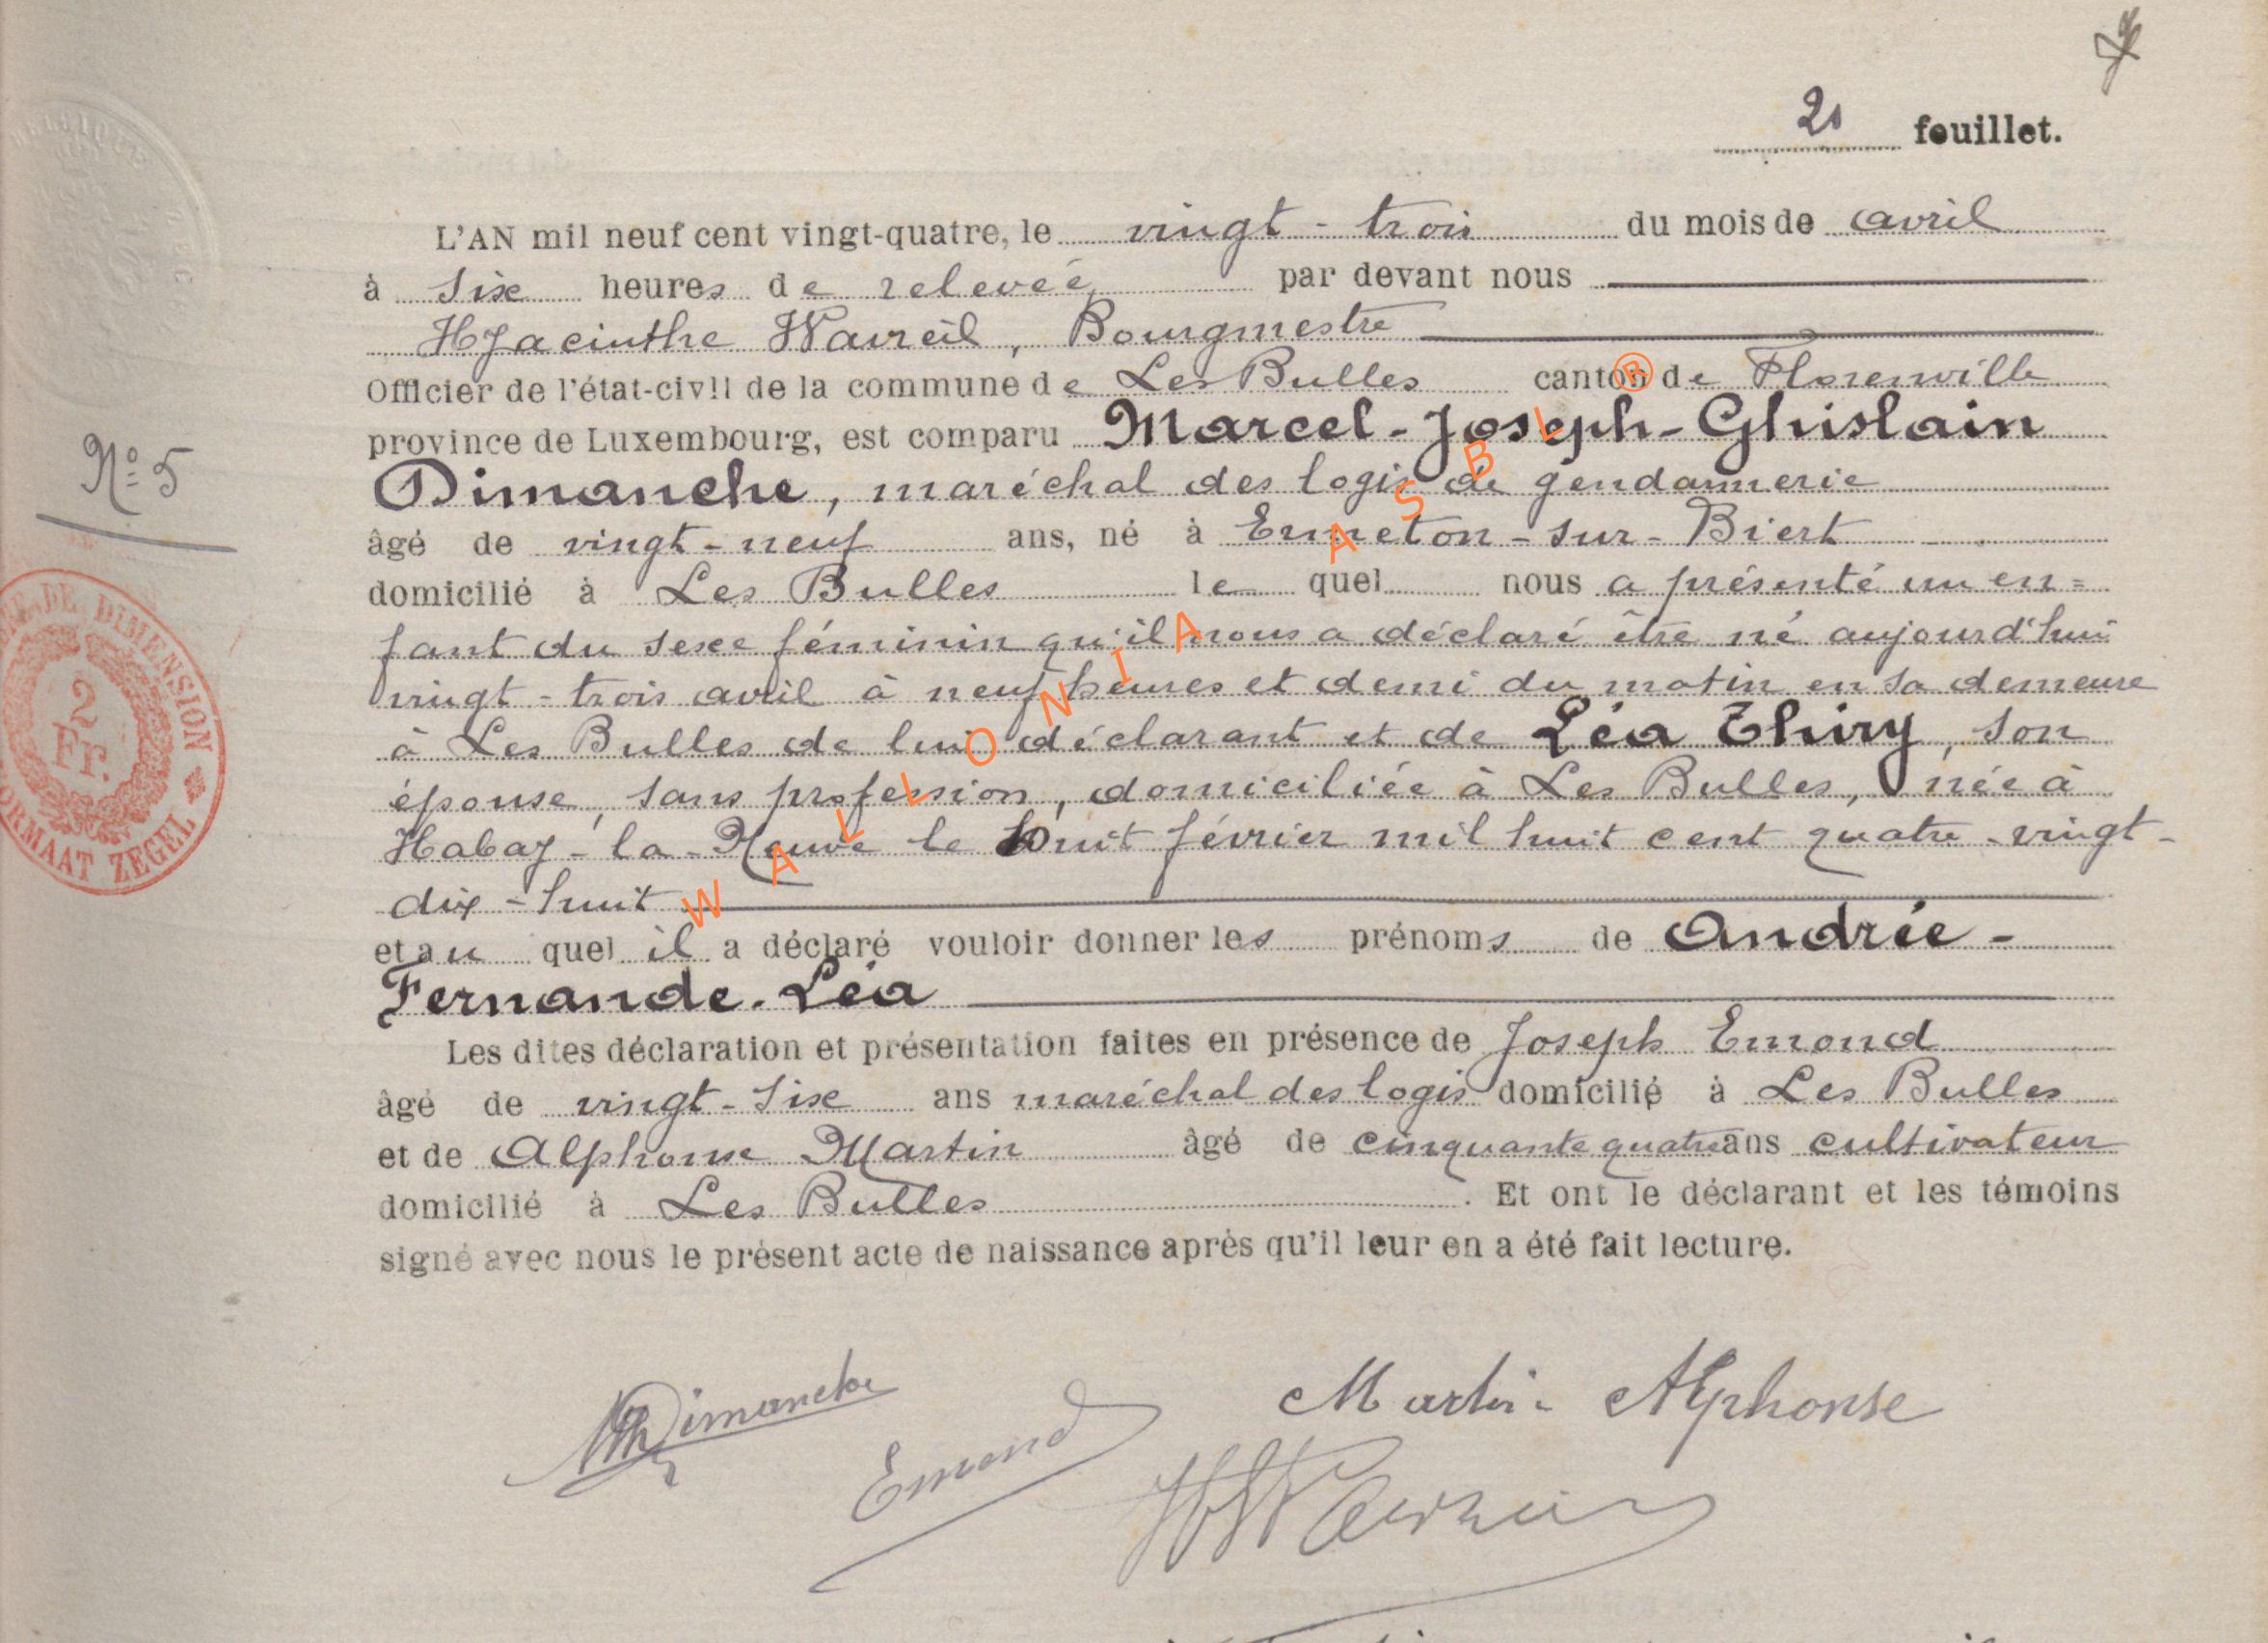 21 feuillet.
L'AN mil neuf cent vingt-quatre, le vingt-trois du mois de avril
à six heures de relevée par devant nous
Hyacinthe Wavreil, Bourgmestre
Officier de l'état-civil de la commune de Les Bulles canton de Florenville
province de Luxembourg, est comparu Marcel-Joseph-Ghislain
Dimanche, maréchal des logis de gendarmerie
N° 5
âgé de vingt-neuf ans, né à Ermeton-sur-Biert
domicilié à Les Bulles lequel nous a présenté un en=
fant du sexe féminin qu'il nous a déclaré être né aujourd'hui
vingt-trois avril à neuf heures et demi du matin en sa demeure
à Les Bulles de lui déclarant et de Léa Thiry, son
épouse, sans profession, domiciliée à Les Bulles, née à
Habay-la-Neuve le huit février mil huit cent quatre-vingt-
dix-huit
et au quel il a déclaré vouloir donner les prénoms de Andrée-
Fernande-Léa
Les dites déclaration et présentation faites en présence de Joseph Emond
âgé de vingt-six ans maréchal des logis domicilié à Les Bulles
et de Alphonse Martin âgé de cinquante quatre ans cultivateur
domicilié à Les Bulles. Et ont le déclarant et les témoins
signé avec nous le présent acte de naissance après qu'il leur en a été fait lecture.
DE DIMENSION
2
Fr.
FORMAAT ZEGEL
WALLONIA ASBL ®
Dimanche
Emond
Martin Alphonse